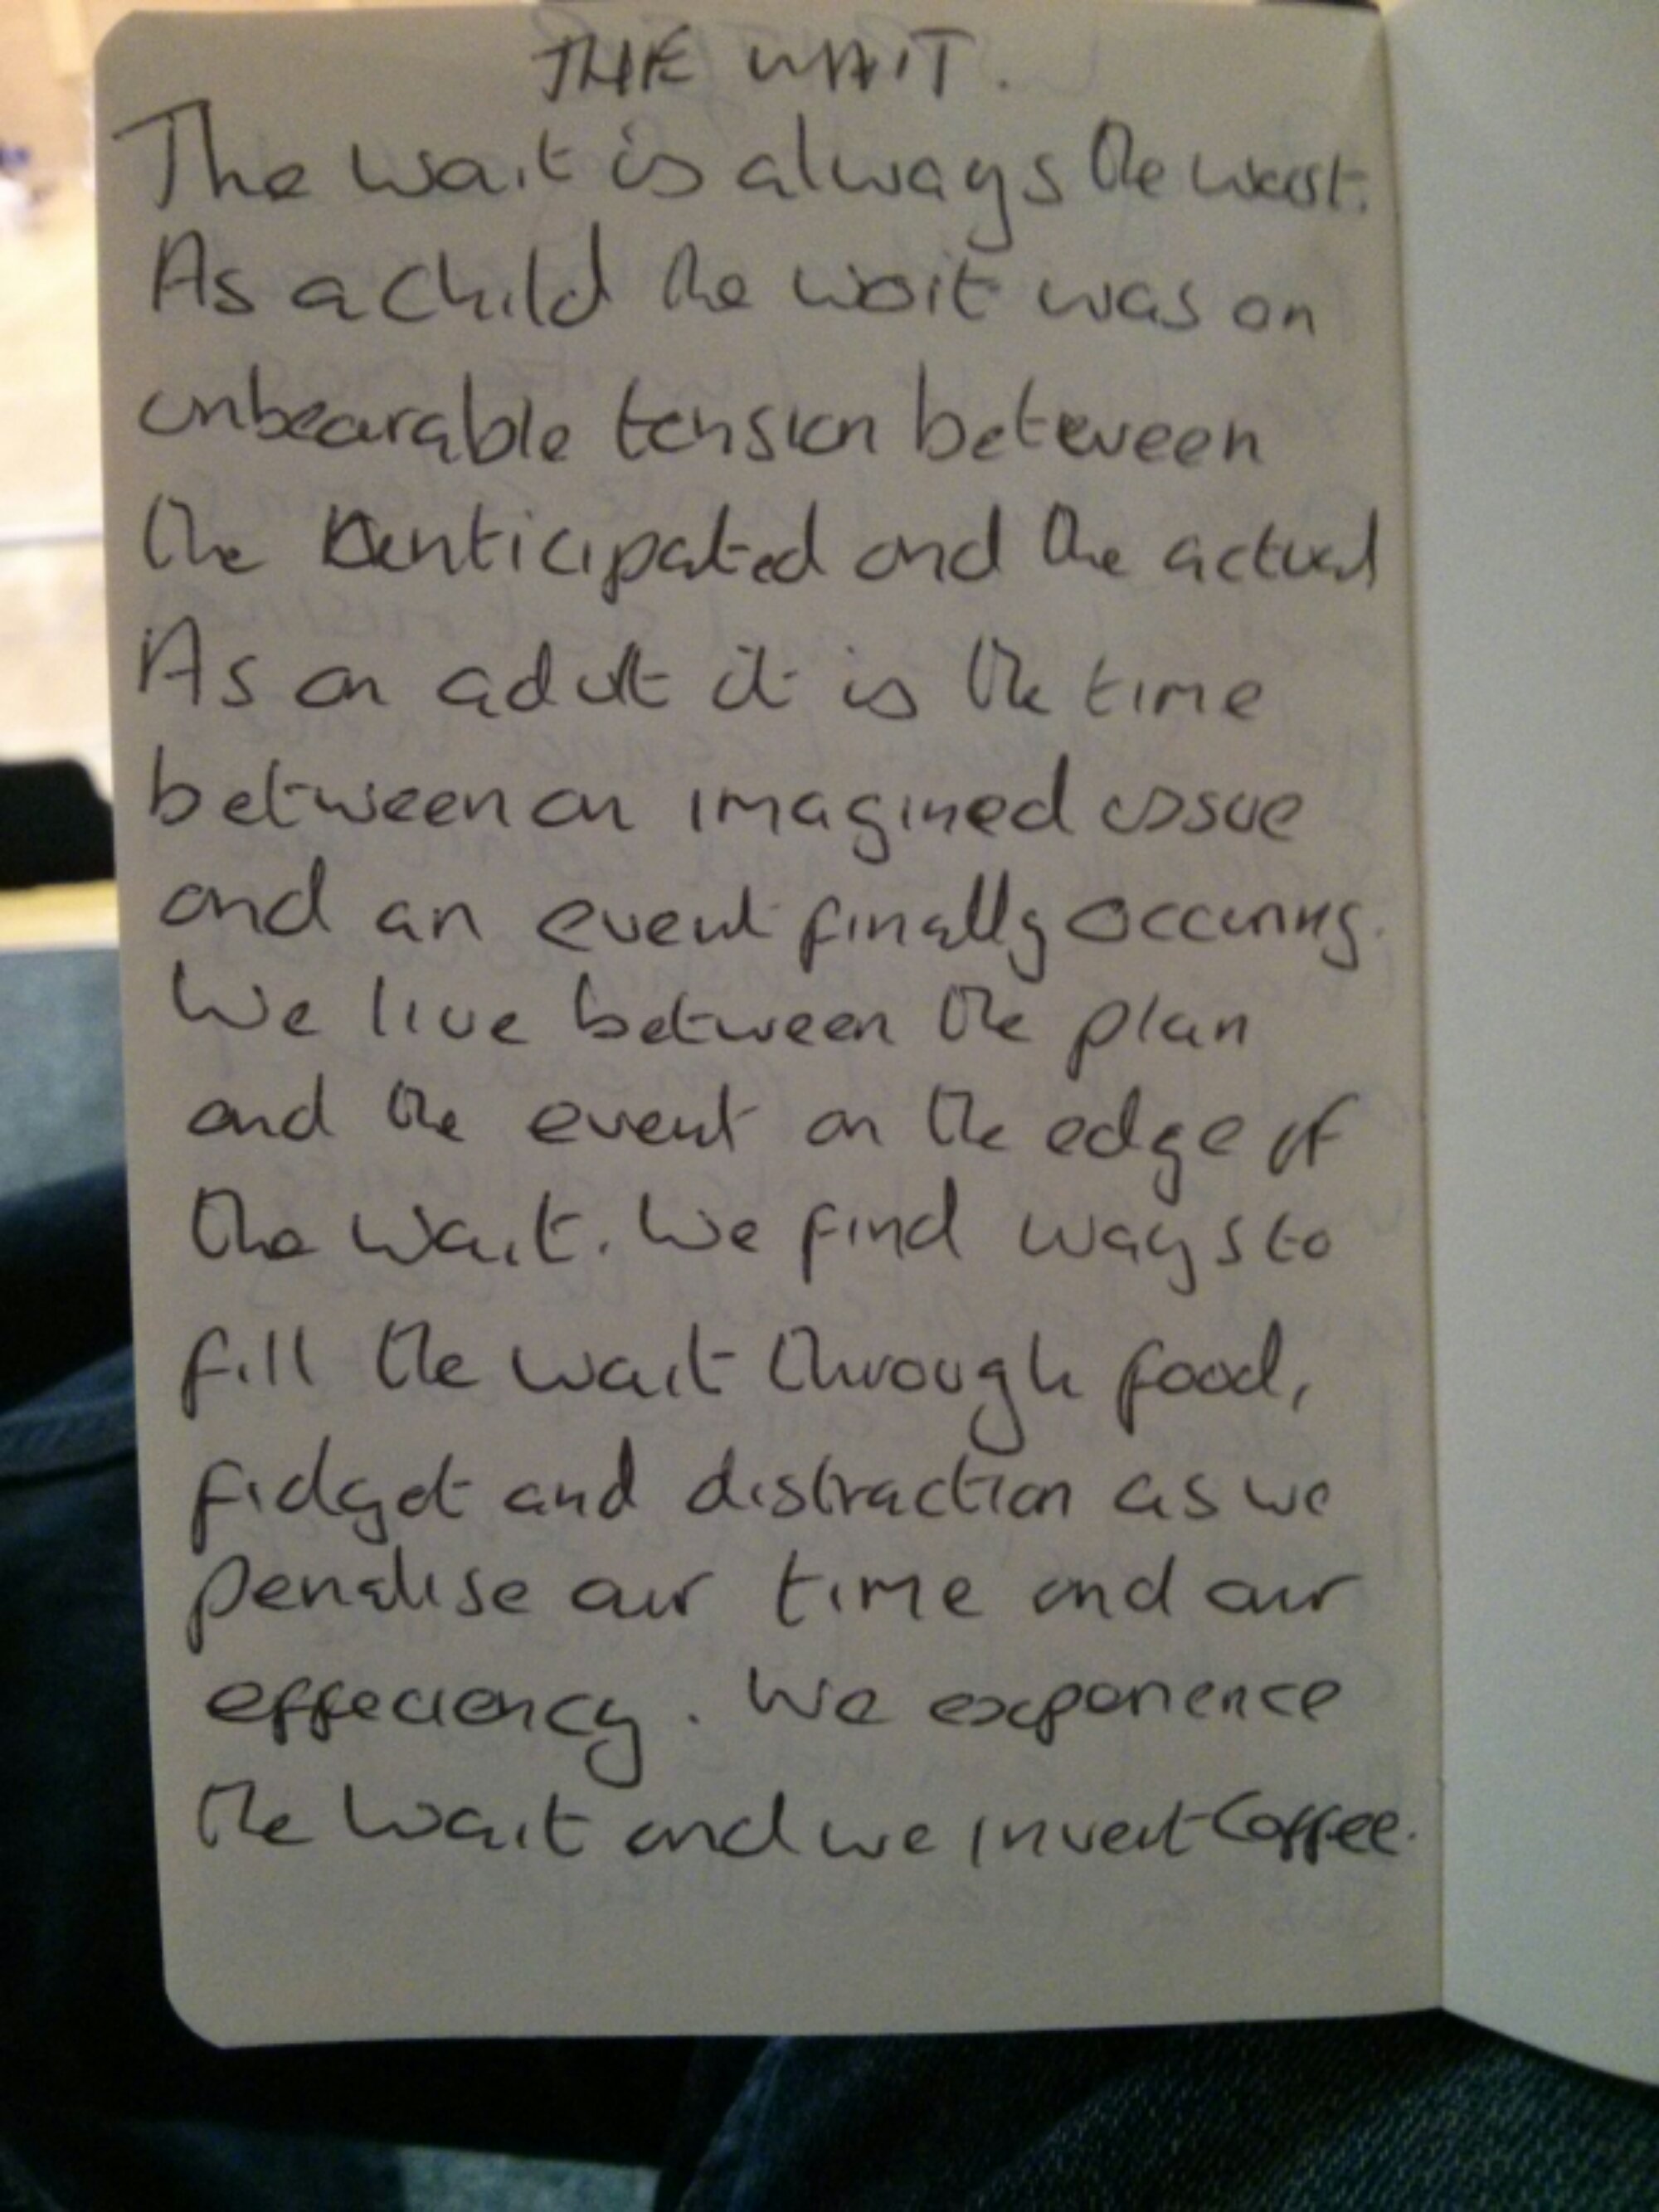 THE WAIT.
The wait is always the worst.
As a child the wait was an
unbearable tension between
the anticipated and the actual
As an adult it is the time
between an imagined issue
and an event finally occuring.
We live between the plan
and the event on the edge of
the wait. We find ways to
fill the wait through food,
fidget and distraction as we
penalise our time and our
effeciency. We experience
the wait and we invent Coffee.